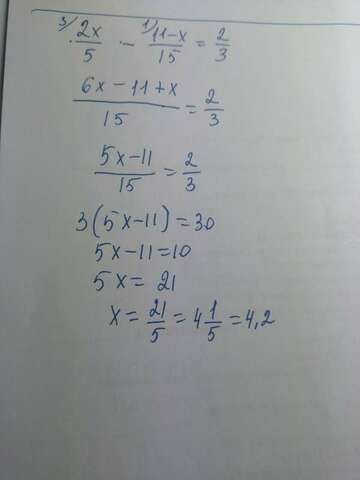 3/ · 2x/5 - 1/ 11-x/15 = 2/3
6x-11+x/15 = 2/3
5x-11/15 = 2/3
3(5x-11)=30
5x-11=10
5x = 21
x = 21/5 = 4 1/5 = 4,2